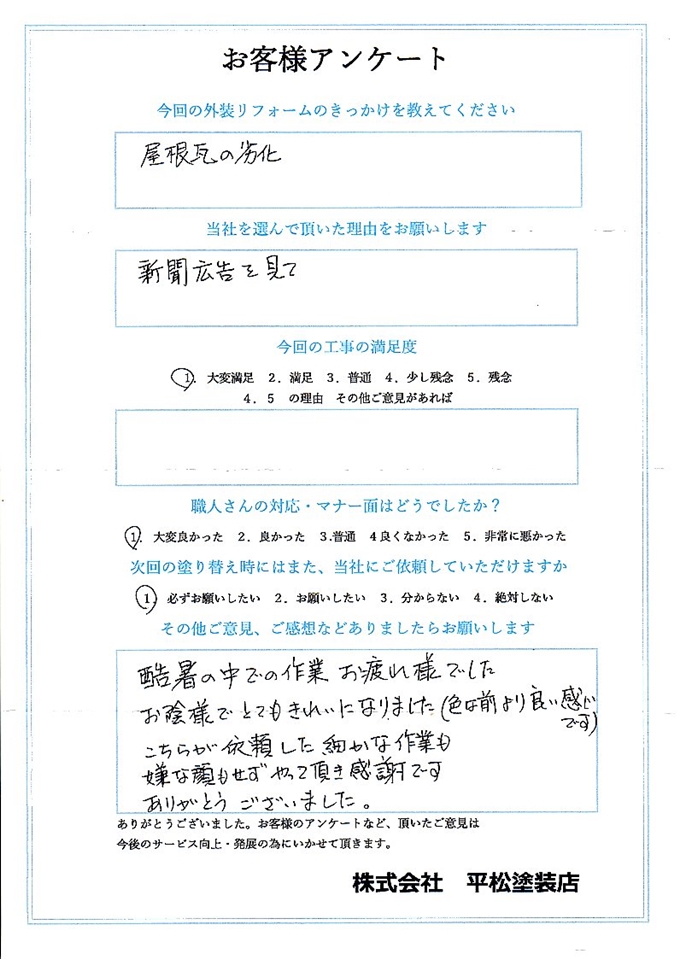 お客様アンケート
今回の外装リフォームのきっかけを教えてください
屋根瓦の劣化
当社を選んで頂いた理由をお願いします
新聞広告を見て
今回の工事の満足度
1. 大変満足 2. 満足 3. 普通 4. 少し残念 5. 残念
4. 5 の理由 その他ご意見があれば
職人さんの対応・マナー面はどうでしたか?
1. 大変良かった 2. 良かった 3.普通 4良くなかった 5. 非常に悪かった
次回の塗り替え時にはまた、当社にご依頼していただけますか
1 必ずお願いしたい 2. お願いしたい 3. 分からない 4. 絶対しない
その他ご意見、ご感想などありましたらお願いします
酷暑の中での作業 お疲れ様でした
お陰様でとてもきれいになりました(色は前より良い感じ
です)
こちらが依頼した細かな作業も
嫌な顔もせずやって頂き感謝です
ありがとうございました。
ありがとうございました。お客様のアンケートなど、頂いたご意見は
今後のサービス向上・発展の為にいかせて頂きます。
株式会社 平松塗装店